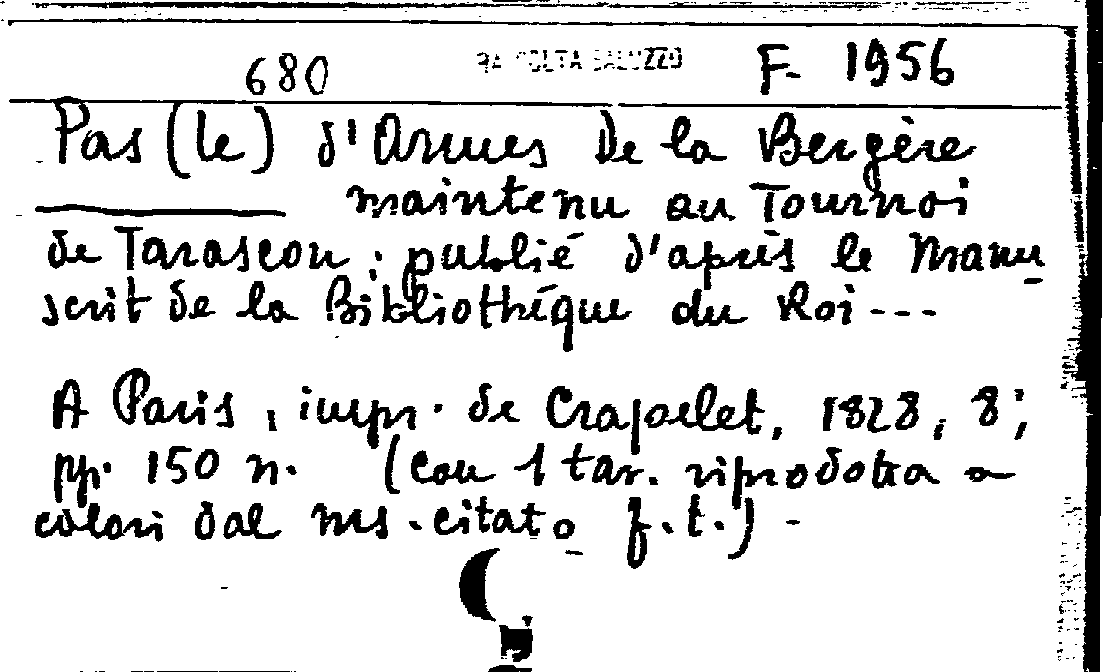 680 RACCOLTA SALUZZO F. 1956
Pas (le) d'Armes de la Bergère
maintenu au Tournoi
de Tarascon; publié d'après le Manu
scrit de la Bibliothéque du Roi ---
A Paris, impr. de Crapelet, 1828, 8°;
pp. 150 n. (con 1 tav. riprodotta a
colori dal ms. citato f. t.) -